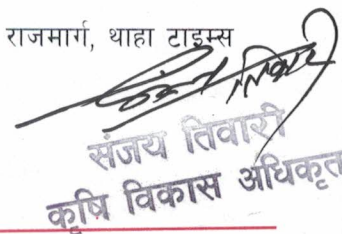 राजमार्ग, थाहा टाइम्स
संजय तिवारी
कृषि विकास अधिकृत